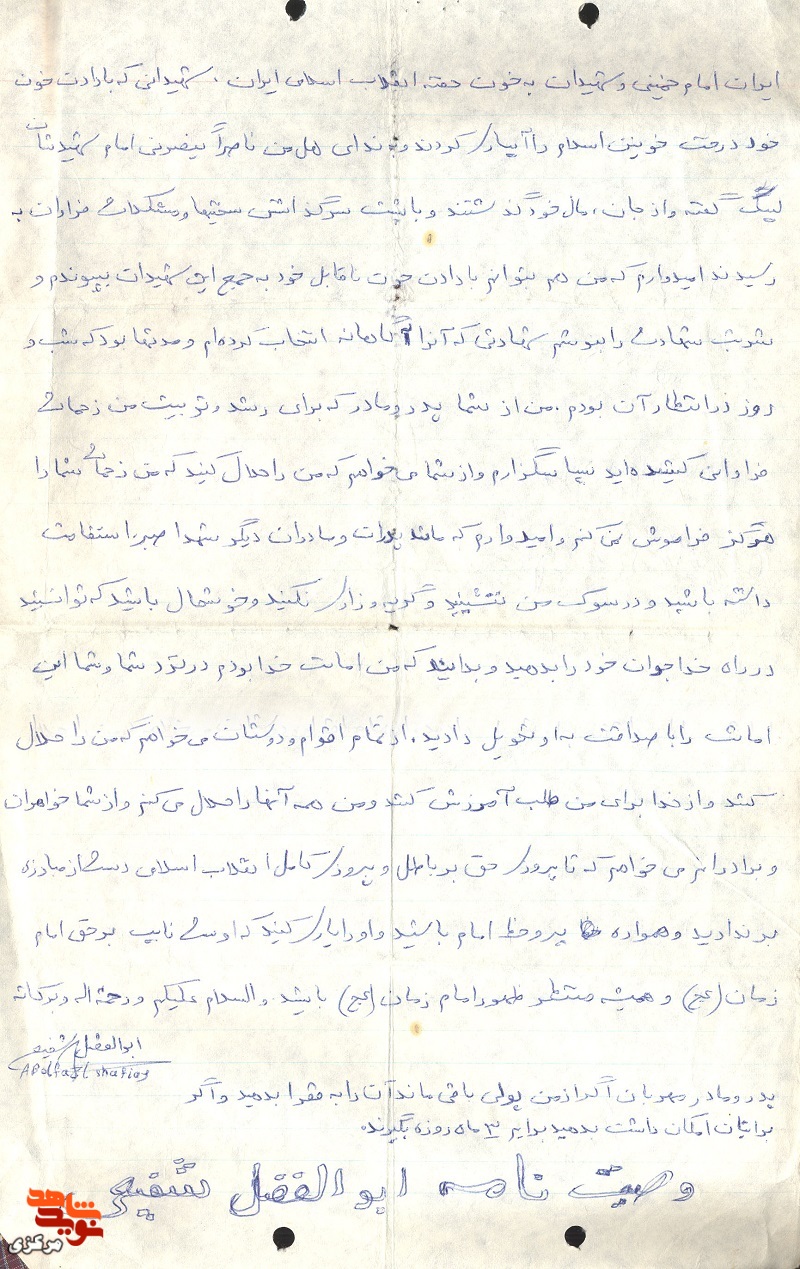 ایران امام خمینی و شهیدان به خون خفته انقلاب اسلامی ایران . شهیدانی که با دادن خون
خود درخت خونین اسلام را آبیاری کردند و به ندای هل من ناصراً ینصرنی امام شهیدشان
لبیک گفته و از جان ، مال خود گذشتند و با پشت سر گذاشتن سختیها و مشکلات فراوان به
رسیدند امیدوارم که من هم بتوانم با دادن خون ناقابل خود به جمع این شهیدان بپیوندم و
شربت شهادت را بنوشم شهادتی که آنرا آگاهانه انتخاب کرده‌ام و مدتها بود که شب و
روز در انتظار آن بودم . من از شما پدر و مادر که برای رشد و تربیت من زحمات
فراوانی کشیده‌اید سپاسگزارم و از شما می‌خواهم که من را حلال کنید که من زحمات شما را
هرگز فراموش نمی‌کنم و امیدوارم که مانند پدران و مادران دیگر شهدا صبر، استقامت
داشته باشید و در سوگ من ننشینید و گریه و زاری نکنید و خوشحال باشید که توانستید
در راه خدا جوان خود را بدهید و بدانید که من امانت خدا بودم در نزد شما و شما این
امانت را با صداقت به او تحویل دادید . از تمام اقوام و دوستان می‌خواهم که من را حلال
کنند و از خدا برای من طلب آمرزش کنند و من همه آنها را حلال می‌کنم و از شما خواهران
و برادرانم می خواهم که تا پیروزی حق بر باطل و پیروزی کامل انقلاب اسلامی دست از مبارزه
بر ندارید و همواره پیرو خط امام باشید و او را یاری کنید که اوست نایب بر حق امام
زمان (عج) و همیشه منتظر ظهور امام زمان (عج) باشید . والسلام علیکم و رحمة اله و برکاته
ابوالفضل شفیعی
Abolfazl shafiay
پدر و مادر مهربان اگر از من پولی باقی ماند آن را به فقرا بدهید و اگر
برایتان امکان داشت بدهید برایم ۳ ماه روزه بگیرند.
وصیت نامه ابوالفضل شفیعی
نوید شاهد
مرکزی